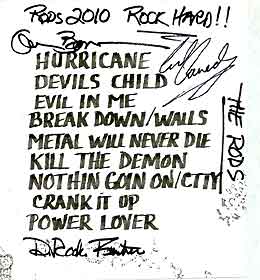 RODS 2010 ROCK HARD!!
HURRICANE
DEVILS CHILD
EVIL IN ME
BREAK DOWN/WALLS
METAL WILL NEVER DIE
KILL THE DEMON
NOTHIN GOIN ON/CITY
CRANK IT UP
POWER LOVER
THE RODS